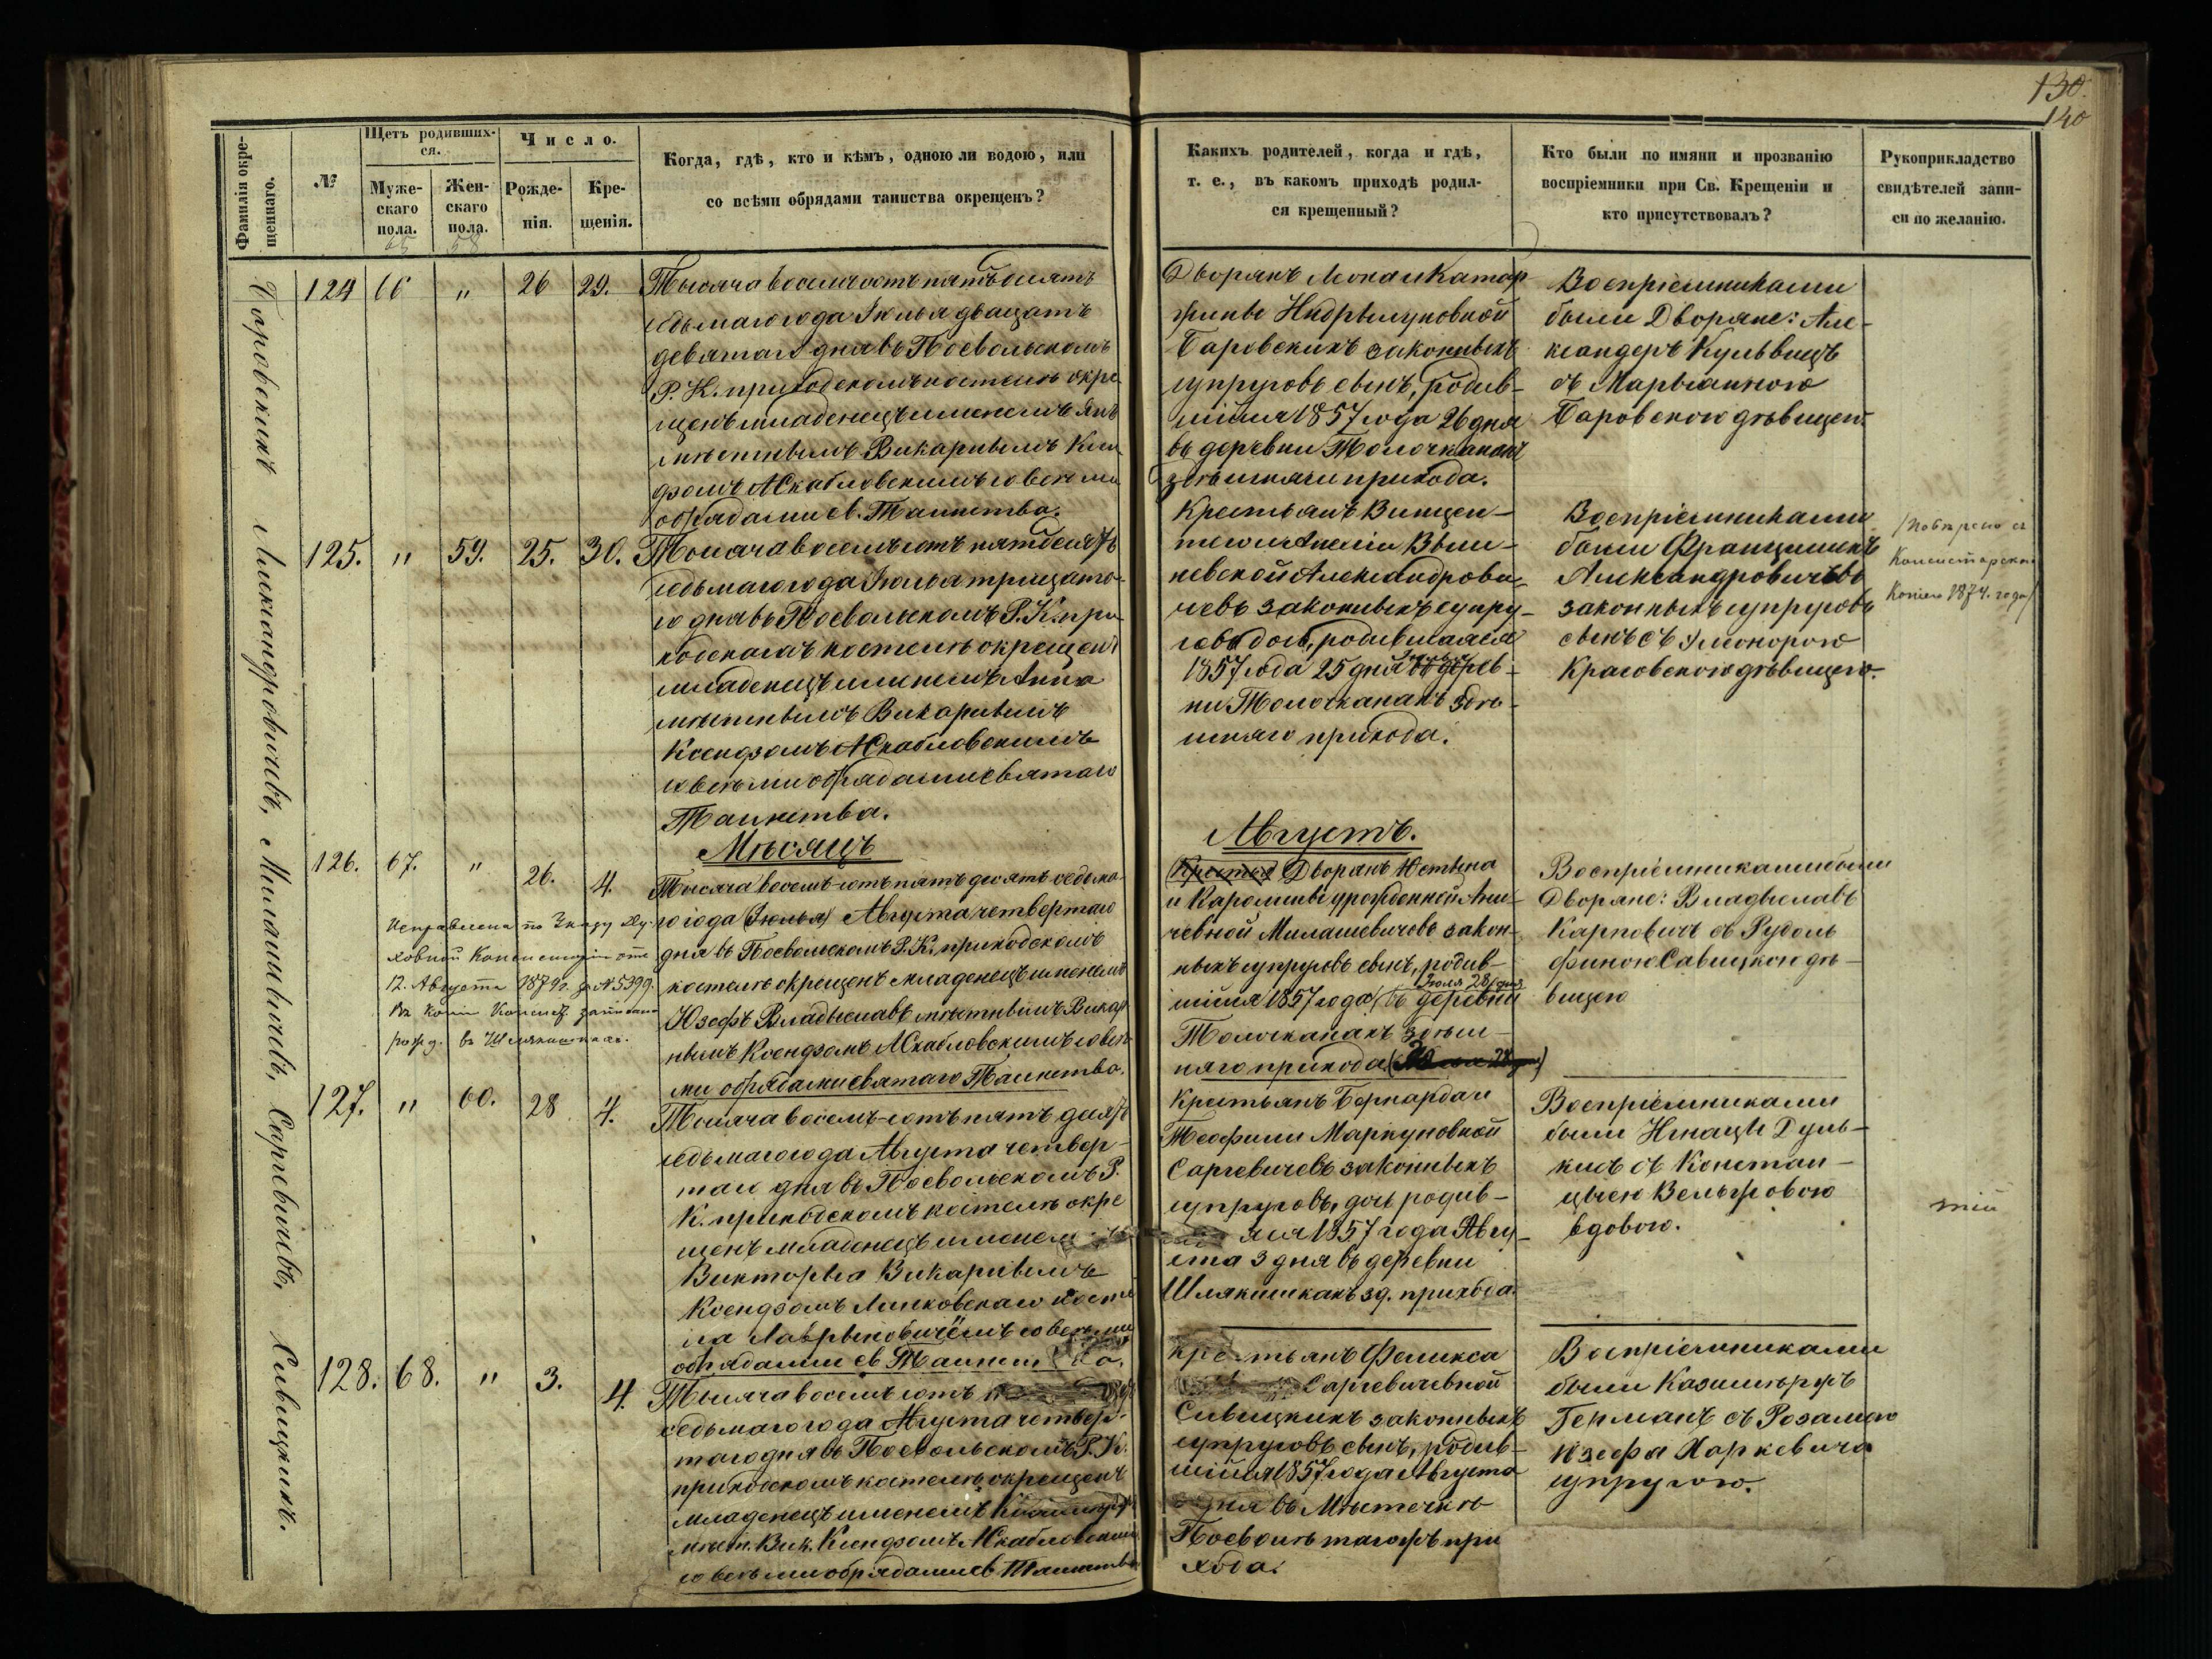 130.
140
Фамилія окре-
щеннаго.
№
Щетъ родивших-
ся.
Муже-
скаго
пола.
65
Жен-
скаго
пола.
58
Число.
Рожде-
нія.
Кре-
щенія.
Когда, гдѣ, кто и кѣмъ, одною ли водою, или
со всѣми обрядами таинства окрещенъ?
Какихъ родителей, когда и гдѣ,
т. е., въ какомъ приходѣ родил-
ся крещенный?
Кто были по имяни и прозванію
воспріемники при Св. Крещеніи и
кто присутствовалъ?
Рукоприкладство
свидѣтелей запи-
си по желанію.
Баровскихъ
124 66 " 26 29.
Тысяча восемсотъ пятьдесятъ
седьмаго года Іюлья двацать
девятаго дня въ Посвольскомъ
Р. К. приходскомъ костелѣ окре
щенъ младенецъ именемъ
мѣстнымъ Викарнымъ Ксен
дзомъ А Скабловскимъ со всѣми
обрядами св. Таинства.
Дворянъ Катар
жины
Баровскихъ законныхъ
супруговъ сынъ, родив-
шійся 1857 года 26 дня
въ деревни Толочканахъ
здѣшняго прихода.
Воспріемниками
были Дворяне: Але-
ксандеръ
съ Марыанною
Баровскою дѣвицею.
Александровичевъ,
125. " 59. 25. 30.
Тысяча восемъсотъ пятдесятъ
седьмаго года Іюлья трицато-
го дня въ Посвольскомъ Р. К. при
ходскомъ костелѣ окрещенъ
младенецъ именемъ Анна
мѣстнымъ Викарнымъ
Ксендзомъ А Скабловскимъ
со всѣми обрядами святаго
Таинства.
Крестьянъ Винцен-
тего и Анеліи Выш-
невской Александрови-
чевъ законныхъ супру-
говъ дочь, родившаяся
1857 года 25 дня въ дерев-
ни Толочканахъ здѣ-
шняго прихода.
Воспріемниками
были Францишекъ
Александровичъ
законныхъ супруговъ
сынъ съ Элеонорою
Красовскою дѣвицею.
1874. года
Мѣсяцъ
Августъ.
Милашевичевъ,
126. 67. " 26. 4.
Исправлена по Указу Ду-
ховной Консисторіи отъ
12. Августа 1879г. за № 5399.
Тысяча восемъ-сотъ пять десять седьма
го года (Іюлья) Августа четвертаго
дня въ Посвольскомъ Р. К. приходскомъ
костелѣ окрещенъ младенецъ именемъ
Юзефъ Владыславъ мѣстнымъ Викар
нымъ Ксендзомъ А Скабловскимъ со всѣ
ми обрядами святаго Таинства.
Дворянъ Юстина
и Каролины урожденной
Милашевичовъ закон-
ныхъ супруговъ сынъ, родив-
Іюля 28 дня
шійся 1857 года въ деревни
Толочканахъ здѣш-
няго прихода
Воспріемниками были
Дворяне: Владыславъ
Карповичъ съ Рудоль
финою Савицкою дѣ-
вицею
Саргевичевъ,
127. " 60. 28 4.
Тысяча восемъ-сотъ пять десятъ
седьмаго года Августа четвер-
таго дня въ Посвольскомъ Р.
К. приходскомъ костелѣ окре
щенъ младенецъ именем
Викторыа Викарнымъ
Ксендзомъ Линковскаго косте
ла со всѣми
обрядами св Таинства.
Крестьянъ Бернарда и
Теофили Маркуновной
Саргевичевъ законныхъ
супруговъ, дочь родив-
1857 года Авгу-
ста 3 дня въ деревни
Шлякишкахъ зд. прихода.
Воспріемниками
были Игнацы Дуль-
кисъ съ Констан-
цыею
вдовою.
тій
Сивицкихъ.
128. 68. " 3. 4.
Тысяча восемъ сотъ
седьмаго года Августа четвер-
таго дня въ Посвольскомъ Р. К.
приходскомъ костелѣ окрещенъ
младенецъ именемъ
мѣст. Вик. Ксендзомъ А Скабловским
со всѣми обрядами св Таинства
Крестьянъ Феликса
Саргевичевной
Сивицкихъ законныхъ
супруговъ сынъ, родив-
шійся 1857 года Августа
дня въ Мѣстечкѣ
Посволѣ тагожъ при
хода.
Воспріемниками
были Казимѣржъ
Германъ съ Розалиею
Юзефа Наркевича
супругою.